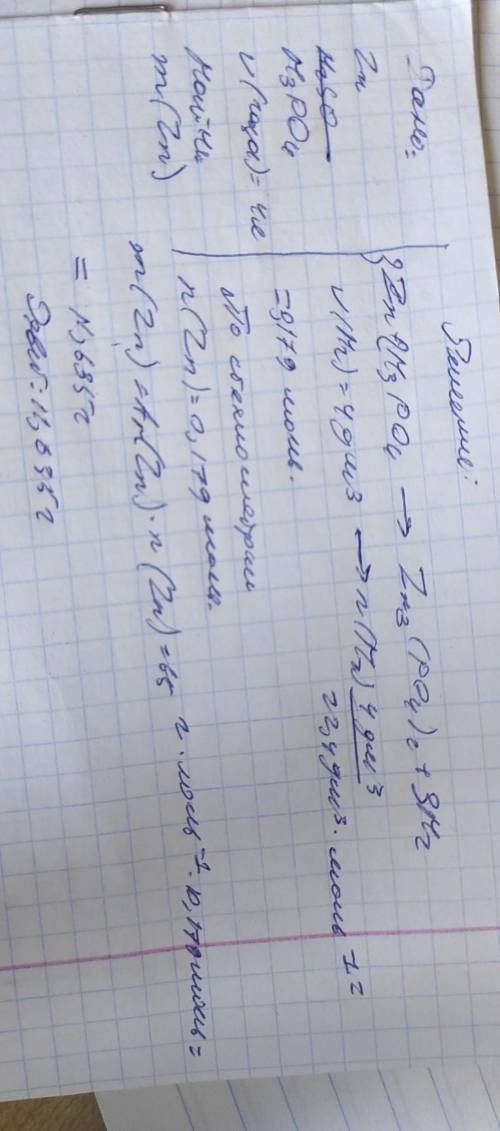 Дано:
Zn
H₃PO₄
V(газа) = 4л
Найти
m(Zn)
Решение:
3Zn + 2H₃PO₄ → Zn₃(PO₄)₂ + 3H₂
V(H₂) = 4 дм³ → n(H₂) 4 дм³ / 22,4 дм³ · моль⁻¹ =
= 0,179 моль.
По стехиометрии
n(Zn) = 0,179 моль.
m(Zn) = Ar(Zn) · n(Zn) = 65 г · моль⁻¹ · 0,179 моль =
= 11,635 г
Ответ: 11,635 г